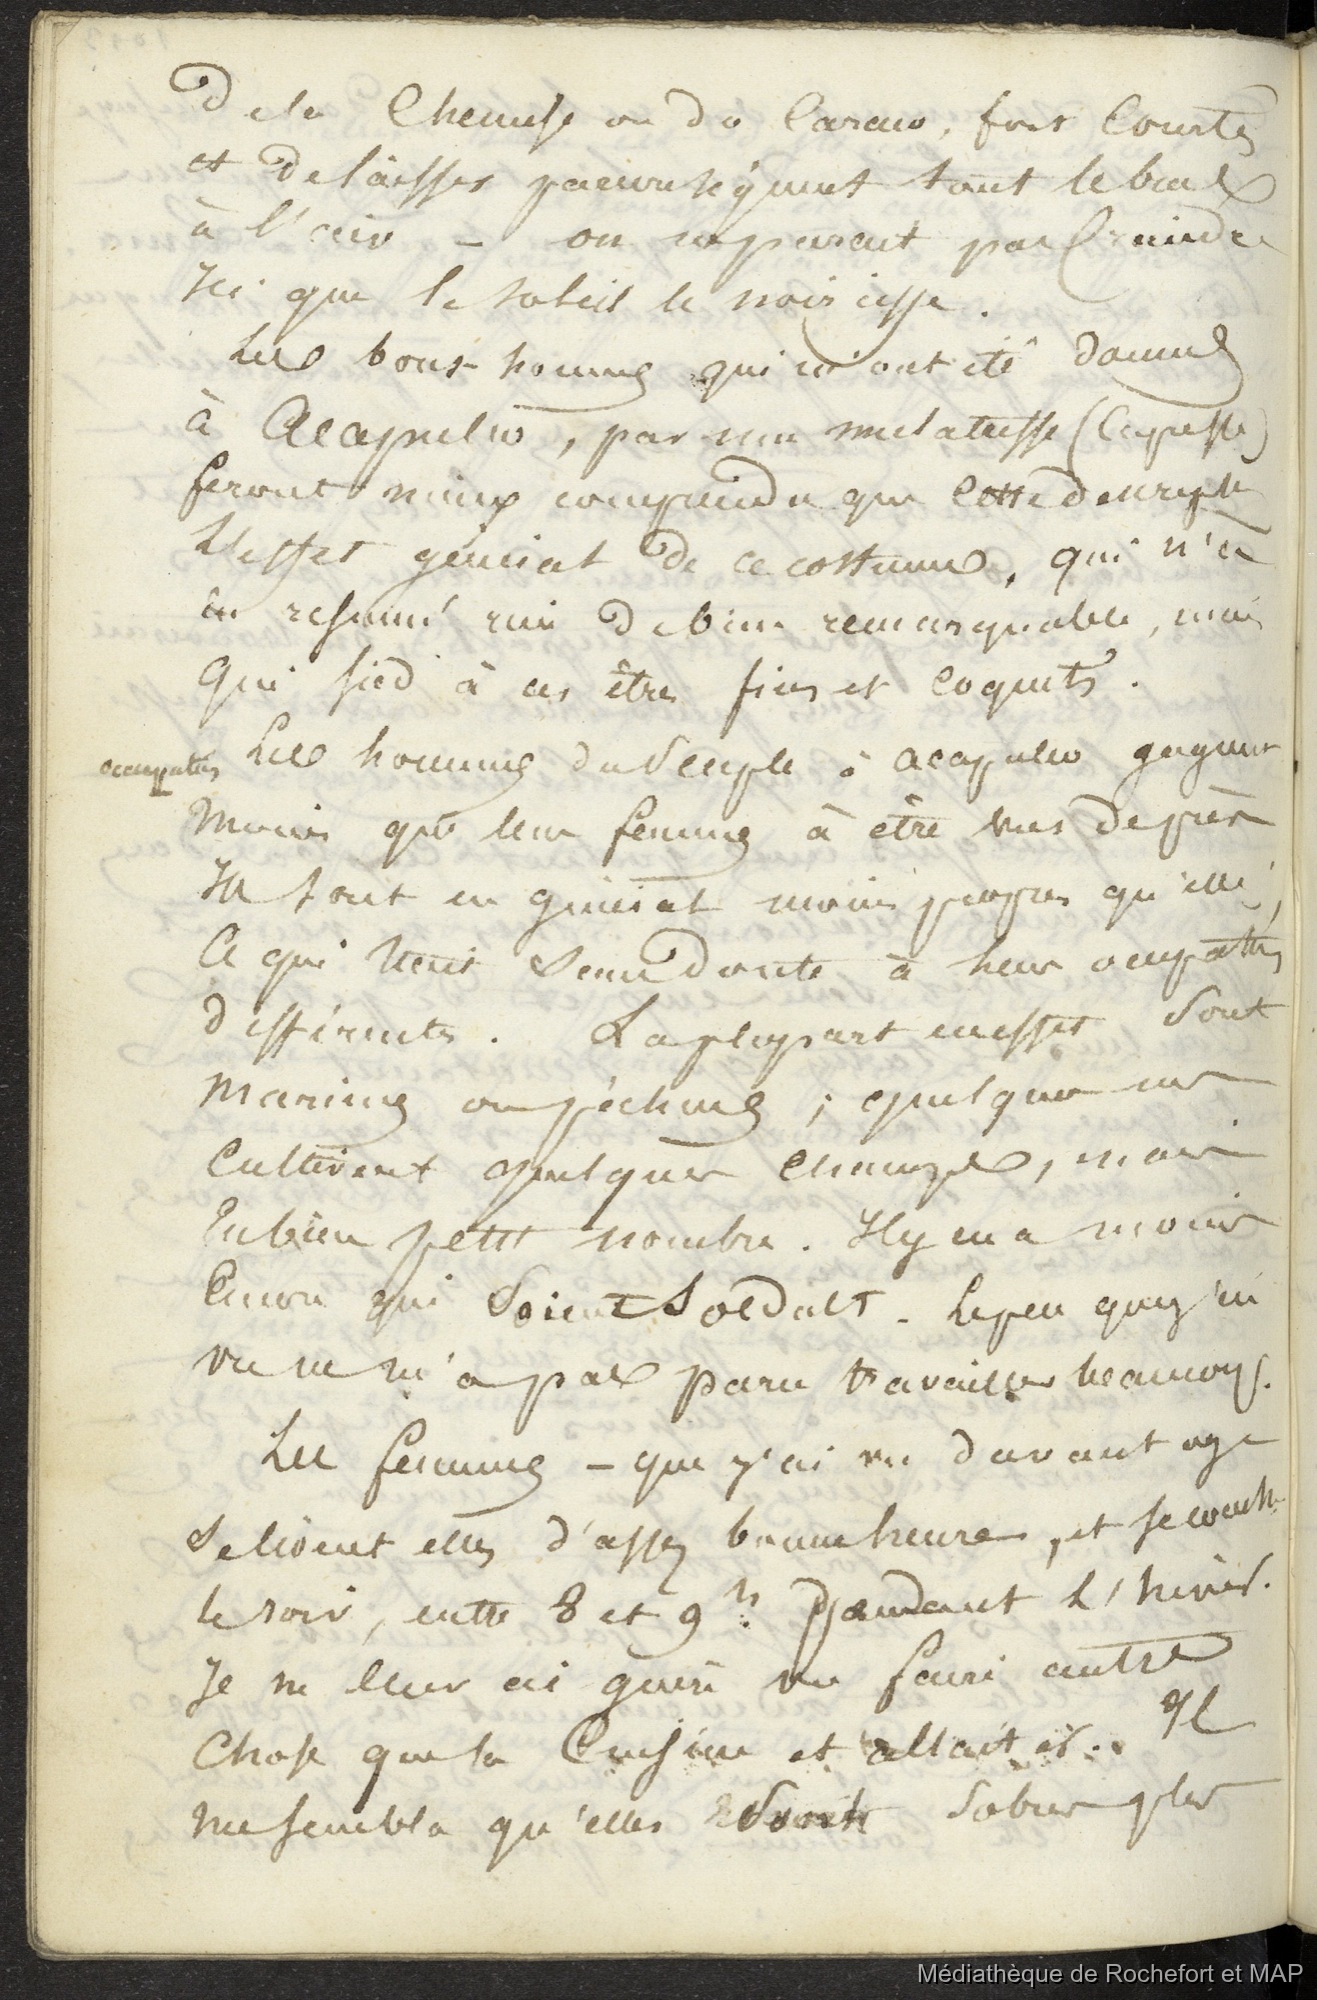 de la Chemise ou du Caraco, fort Courtes
et delaisser par conséquent tout le bras
à l'air – on ne parait pas Craindre
Ici que le soleil le noircisse.
Les bons hommes qui m'ont été donnés
à Acapulco, par une mulatresse (Capresse)
feront mieux comprendre que cette descript
L'effet général de ce costume, qui n'a
en résumé rien de bien remarquable, mais
Qui sied à ces êtres fins et coquets.
occupatns
Les hommes du Peuple à Acapulco gagnent
Moins que leur femmes à être vus de près
Ils sont en général moins propres qu'elles,
Ce qui tient Sans doute à leur occupatns
différentes. La plupart en effet Sont
Marins ou pêcheurs ; quelques uns
Cultivent quelques Champs, mais
En bien petit nombre. Il y en a moins
Encore qui Soient Soldats. Le peu que j'en
vu ne m'a pas paru travailler beaucoup.
Les femmes – que j'ai vu davantage
Se lèvent elles d'assez bonne heure, et se couchent
le soir, entre 8 et 9 h. pendant l'hiver.
Je ne leur ai guère vu faire autre
Chose que la Cuisine et allaiter. Il
me sembla qu'elles Sont Sobres plus
Médiathèque de Rochefort et MAP